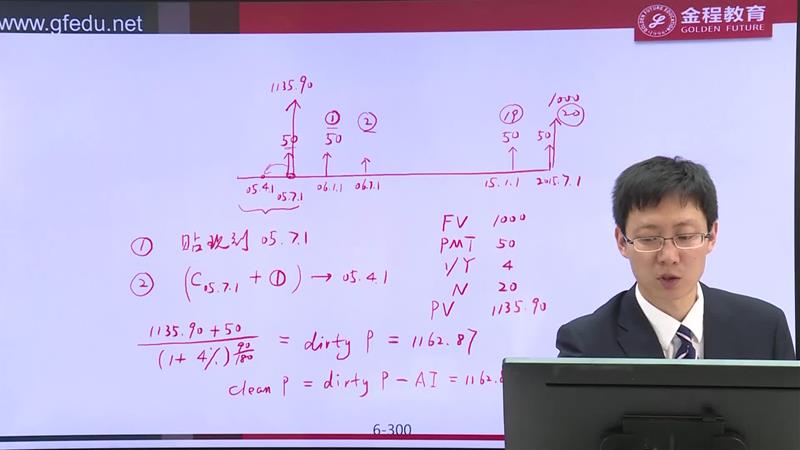 www.gfedu.net
金程教育
GOLDEN FUTURE
1135.90
1000
① ② ⑲ ⑳
50 50 50 50
05.4.1 05.7.1 06.1.1 06.7.1 15.1.1 2015.7.1
① 贴现到 05.7.1
② (C05.7.1 + ①) → 05.4.1
FV 1000
PMT 50
I/Y 4
N 20
PV 1135.90
1135.90 + 50
(1 + 4%)90/180 = dirty P = 1162.87
clean P = dirty P - AI = 1162.8
6-300